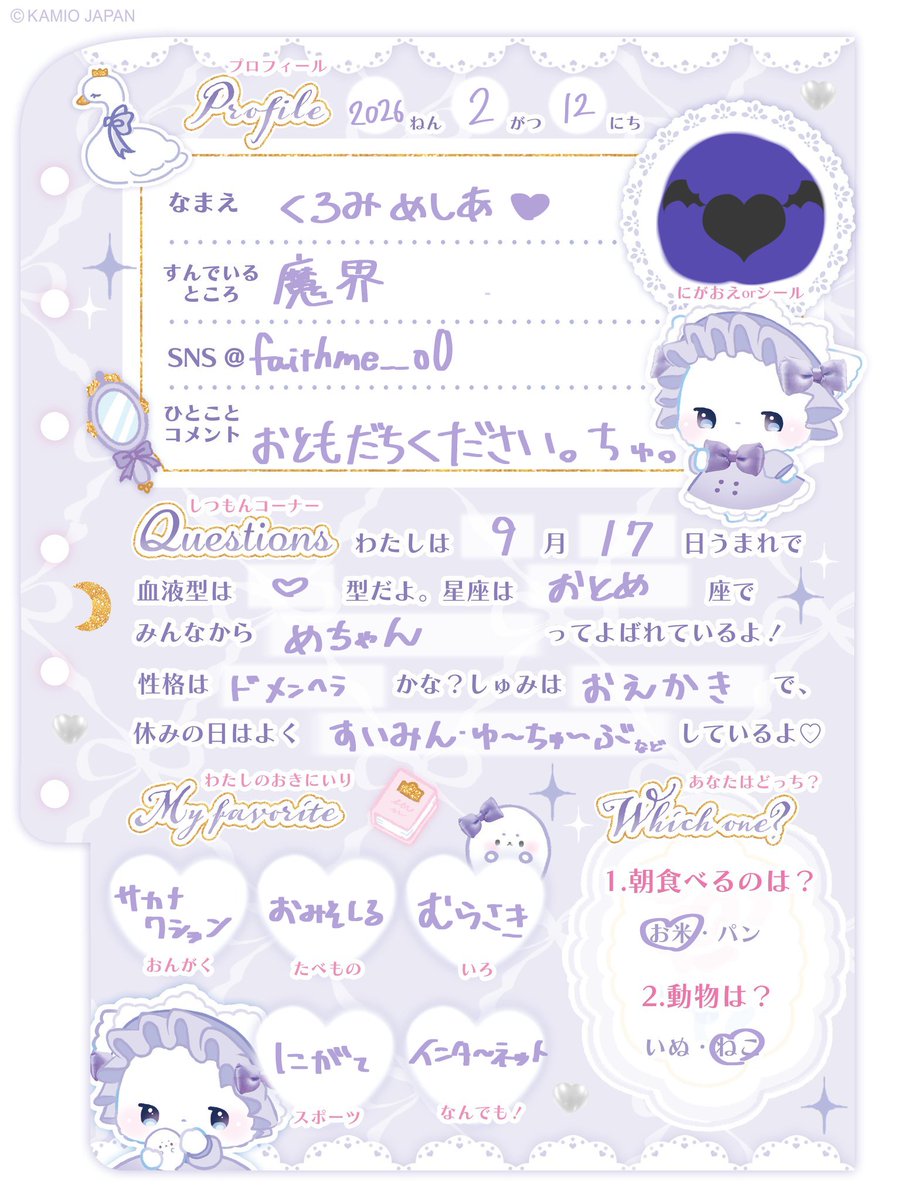 ©KAMIO JAPAN
プロフィール
Profile 2026 ねん 2 がつ 12 にち
なまえ くろみ めしあ ♥
すんでいる
ところ 魔界
にがおえorシール
SNS @ faithme_o0
ひとこと
コメント おともだちください。ちゅ。
しつもんコーナー
Questions わたしは 9 月 17 日うまれで
血液型は ♡ 型だよ。星座は おとめ 座で
みんなから めちゃん ってよばれているよ！
性格は ドメンヘラ かな？しゅみは おえかき で、
休みの日はよく すいみん・ゆ〜ちゅ〜ぶなど しているよ♡
わたしのおきにいり
My favorite
サカナ
クション
おんがく
おみそしる
たべもの
むらさき
いろ
にがて
スポーツ
インターネット
なんでも！
あなたはどっち？
Which one?
1.朝食べるのは？
お米・パン
2.動物は？
いぬ・ねこ